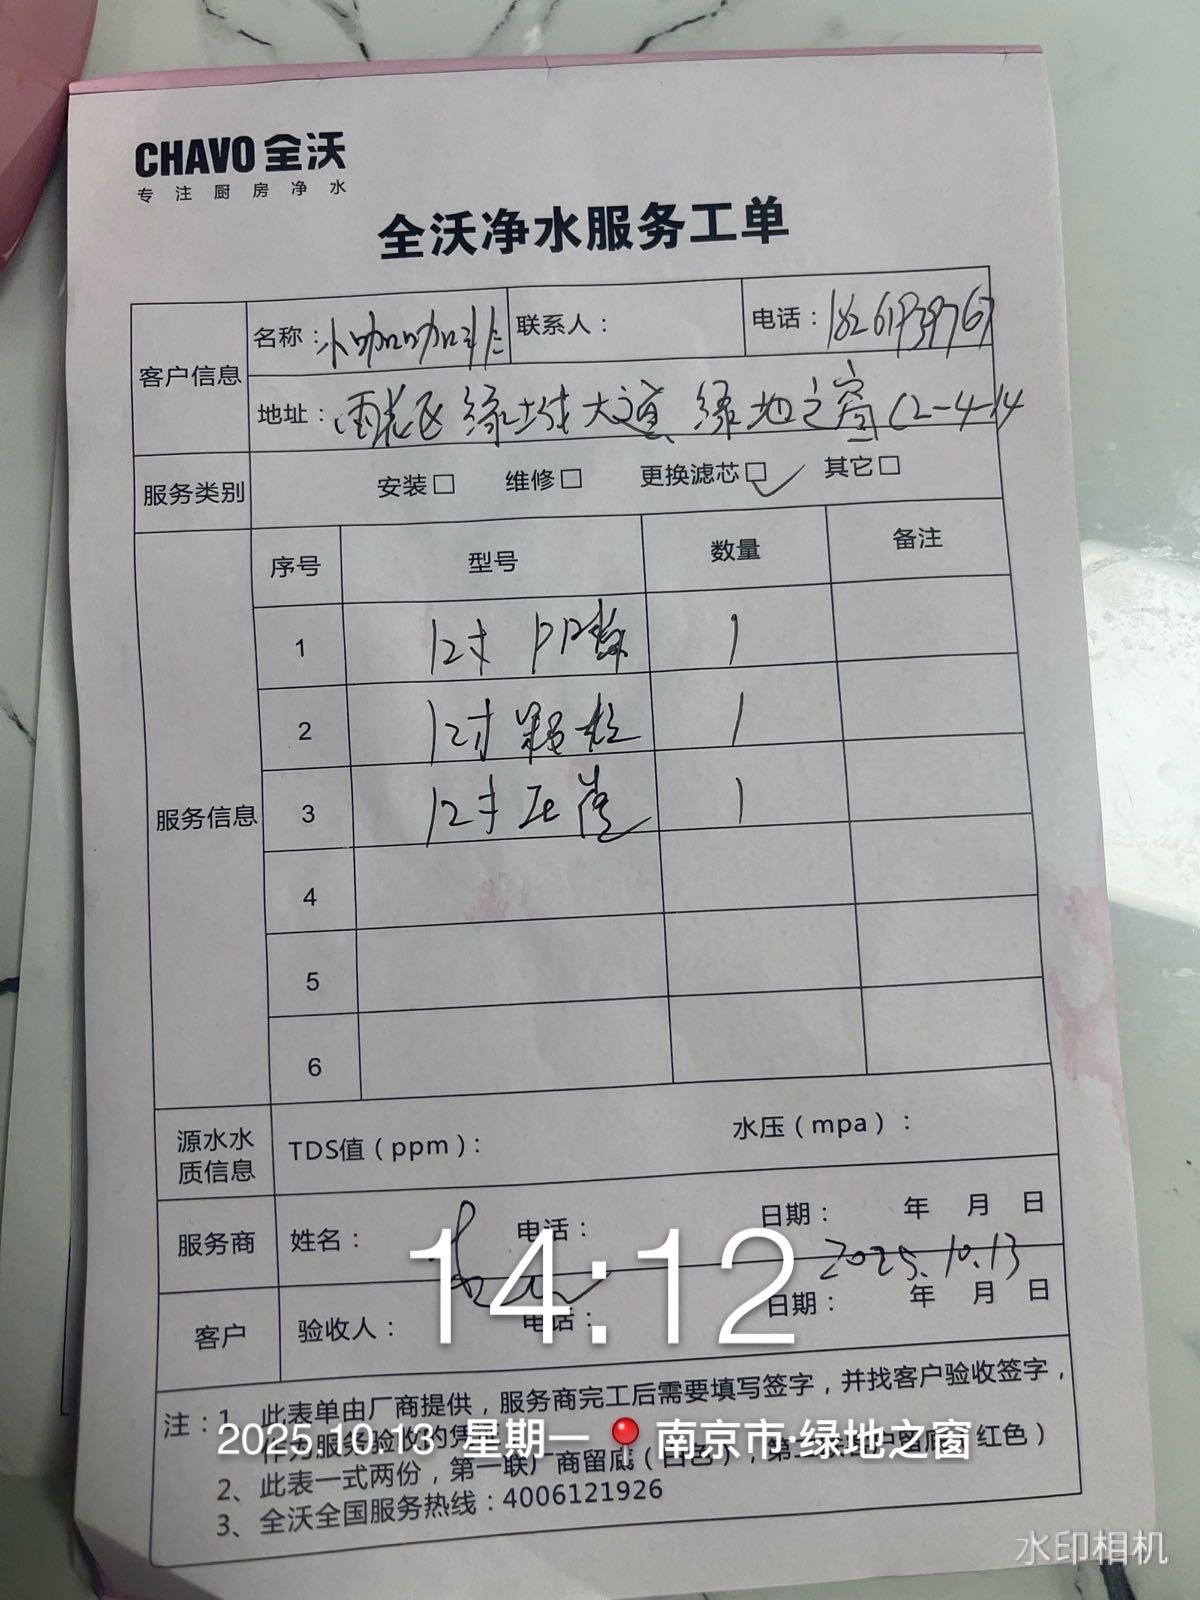 CHAVO 全沃
专注厨房净水
全沃净水服务工单
客户信息
名称：小咖咖啡
联系人：
电话：
地址：雨花区 绿城大道 绿地之窗C2-4-14
服务类别
安装□ 维修□ 更换滤芯□✓ 其它□
服务信息
序号 型号 数量 备注
1 12寸 PP棉 1
2 12寸 颗粒 1
3 12寸 压缩 1
4
5
6
源水水质信息
TDS值（ppm）： 水压（mpa）：
服务商 姓名： 电话： 日期： 年 月 日
2025.10.13
客户 验收人： 电话： 日期： 年 月 日
14:12
注：1、此表单由厂商提供，服务商完工后需要填写签字，并找客户验收签字，
作为服务验收的凭
2、此表一式两份，第一联厂商留底（白色），第二联客户留底（红色）
3、全沃全国服务热线：4006121926
2025.10.13 星期一 📍南京市·绿地之窗
水印相机